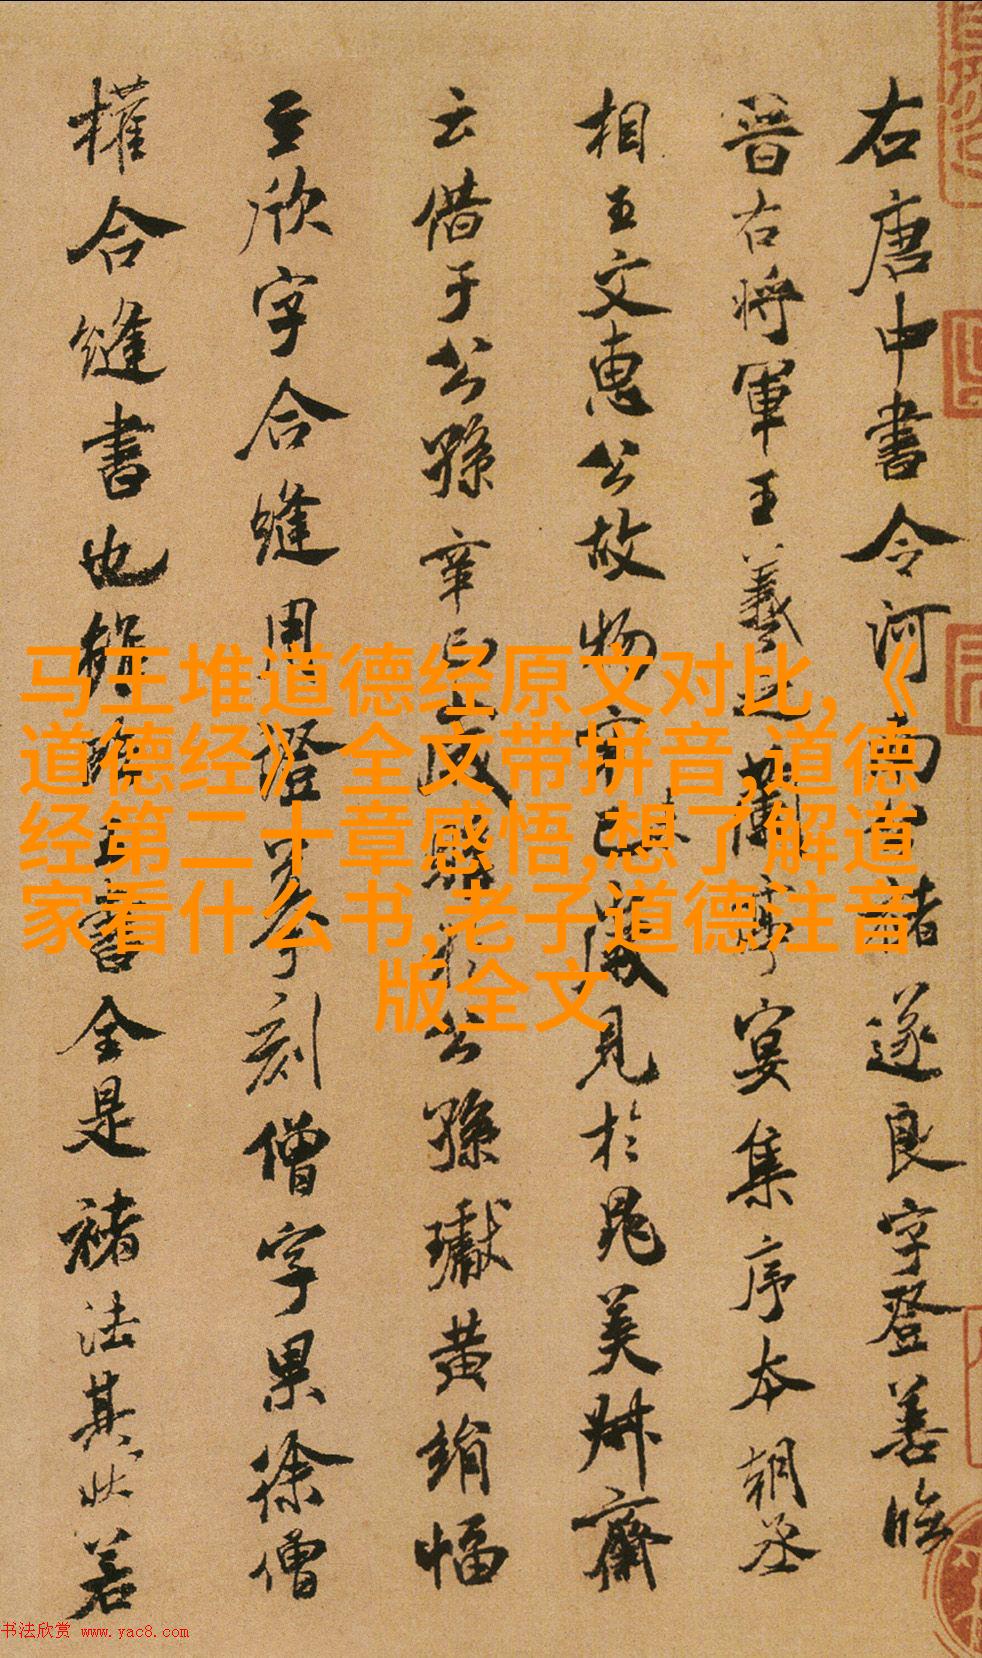 右唐中書令河南公褚遂良字登善臨
晉右将軍王羲之蘭亭宴集序本朝丞
相王文惠公故物辛巳歲見於晁美叔齋
云借于公孫辛巳歲購於公孫瓛黃絹幅
至欣字合縫用證摹刻僧字果徐僧
權合縫書也雖臨王書全是褚法其狀若
马王堆道德经原文对比,《
道德经》全文带拼音,道德
经第二十章感悟,想了解道
家看什么书,老子道德注音
版全文
书法欣赏 www.yac8.com